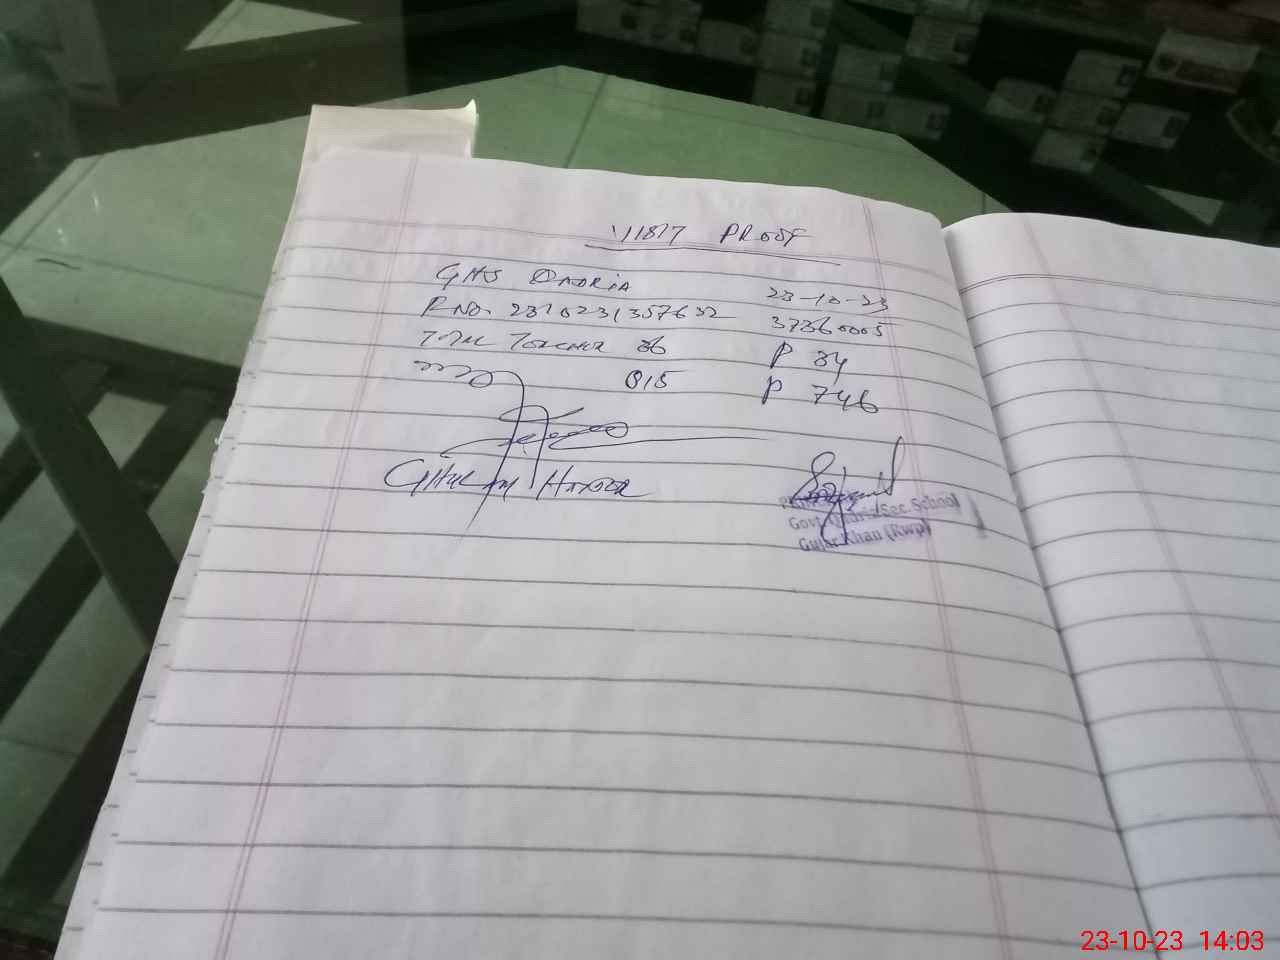 VISIT PROOF
GHS QADRIA 23-10-23
P.NO. 37360005
Total Teacher 36 P 34
815 P 746
GHULAM HAIDER
Govt. Qadria Sec. School
Gujar Khan (Rwp)
23-10-23 14:03